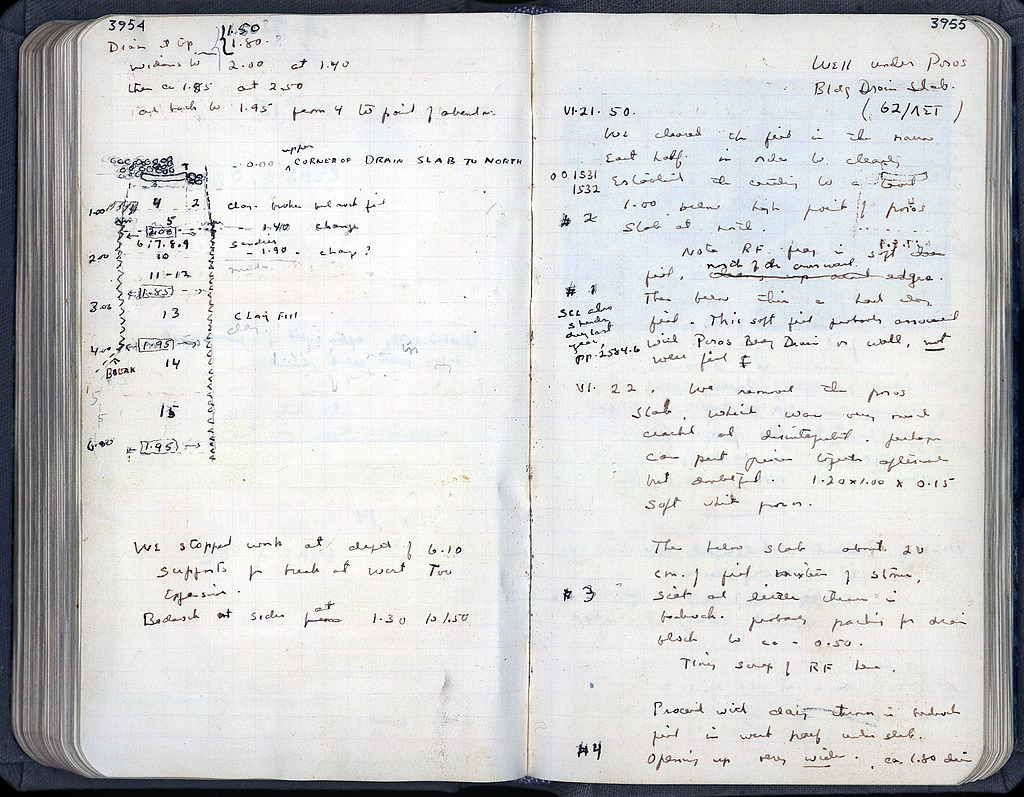 3954
Diam at top 1.50
1.80?
widens to 2.00 at 1.40
then ca 1.85 at 2.50
and back to 1.95 from 4 to point of
0.00 upper CORNER OF DRAIN SLAB TO NORTH
1
3
1.00
4 2
5
1.40 change
2.00
6, 7. 8. 9
Sandier
1.90 - change?
2.00
10
11-12
1.85
3.00
13 CLAY FILL
4.00
1.95
14
BREAK
15
6.00
1.95
We stopped work at depth of 6.10
Supports for break at west Too
Expensive.
Bedrock at sides at 1.30 to 1.50
3955
Well under Poros
Bldg Drain Slab.
(62/ΛΣΤ)
VI.21.50.
We cleared the fill in the narrow
East half in order to clearly
001531
1532
Establish the
1.00 below high point of poros
# 2
Slab at north.
Note RF frag in soft
fill, north of the edges.
# 1
Then below this a hard clay
See also
fill. This soft fill probably associated
last
year,
pp. 2584-6
with Poros Bldg Drain or wall, not
well fill
VI. 22. We removed the poros
Slab, which was very much
cracked and disintegrated. perhaps
can put pieces together afterwards
but doubtful. 1.20 x 1.00 x 0.15
Soft white poros.
Then below slab about 20
cm. of fill mixture of stones,
# 3
bedrock. probably packing for drain
block to ca - 0.50.
Tiny scrap of RF here.
Proceed with clay bedrock
fill in west half under slab.
#4
Opening up very wide. ca. 1.80 diam